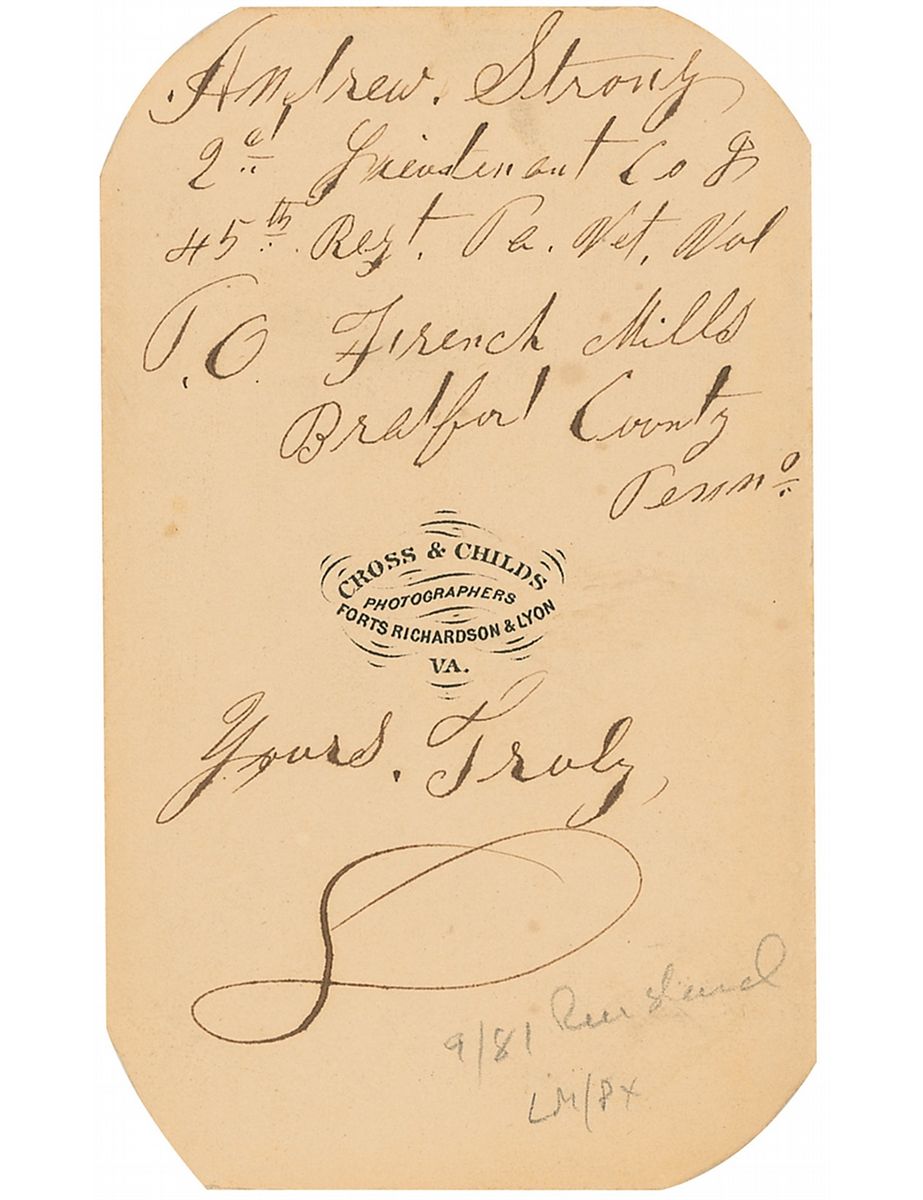 Andrew. Strong
2d Lieutenant Co G
45th Regt. Pa. Vet. Vol
P.O. French Mills
Bradford County
Penna
CROSS & CHILDS
PHOTOGRAPHERS
FORTS RICHARDSON & LYON
VA.
Yours. Truly,
9/81
LM/PX